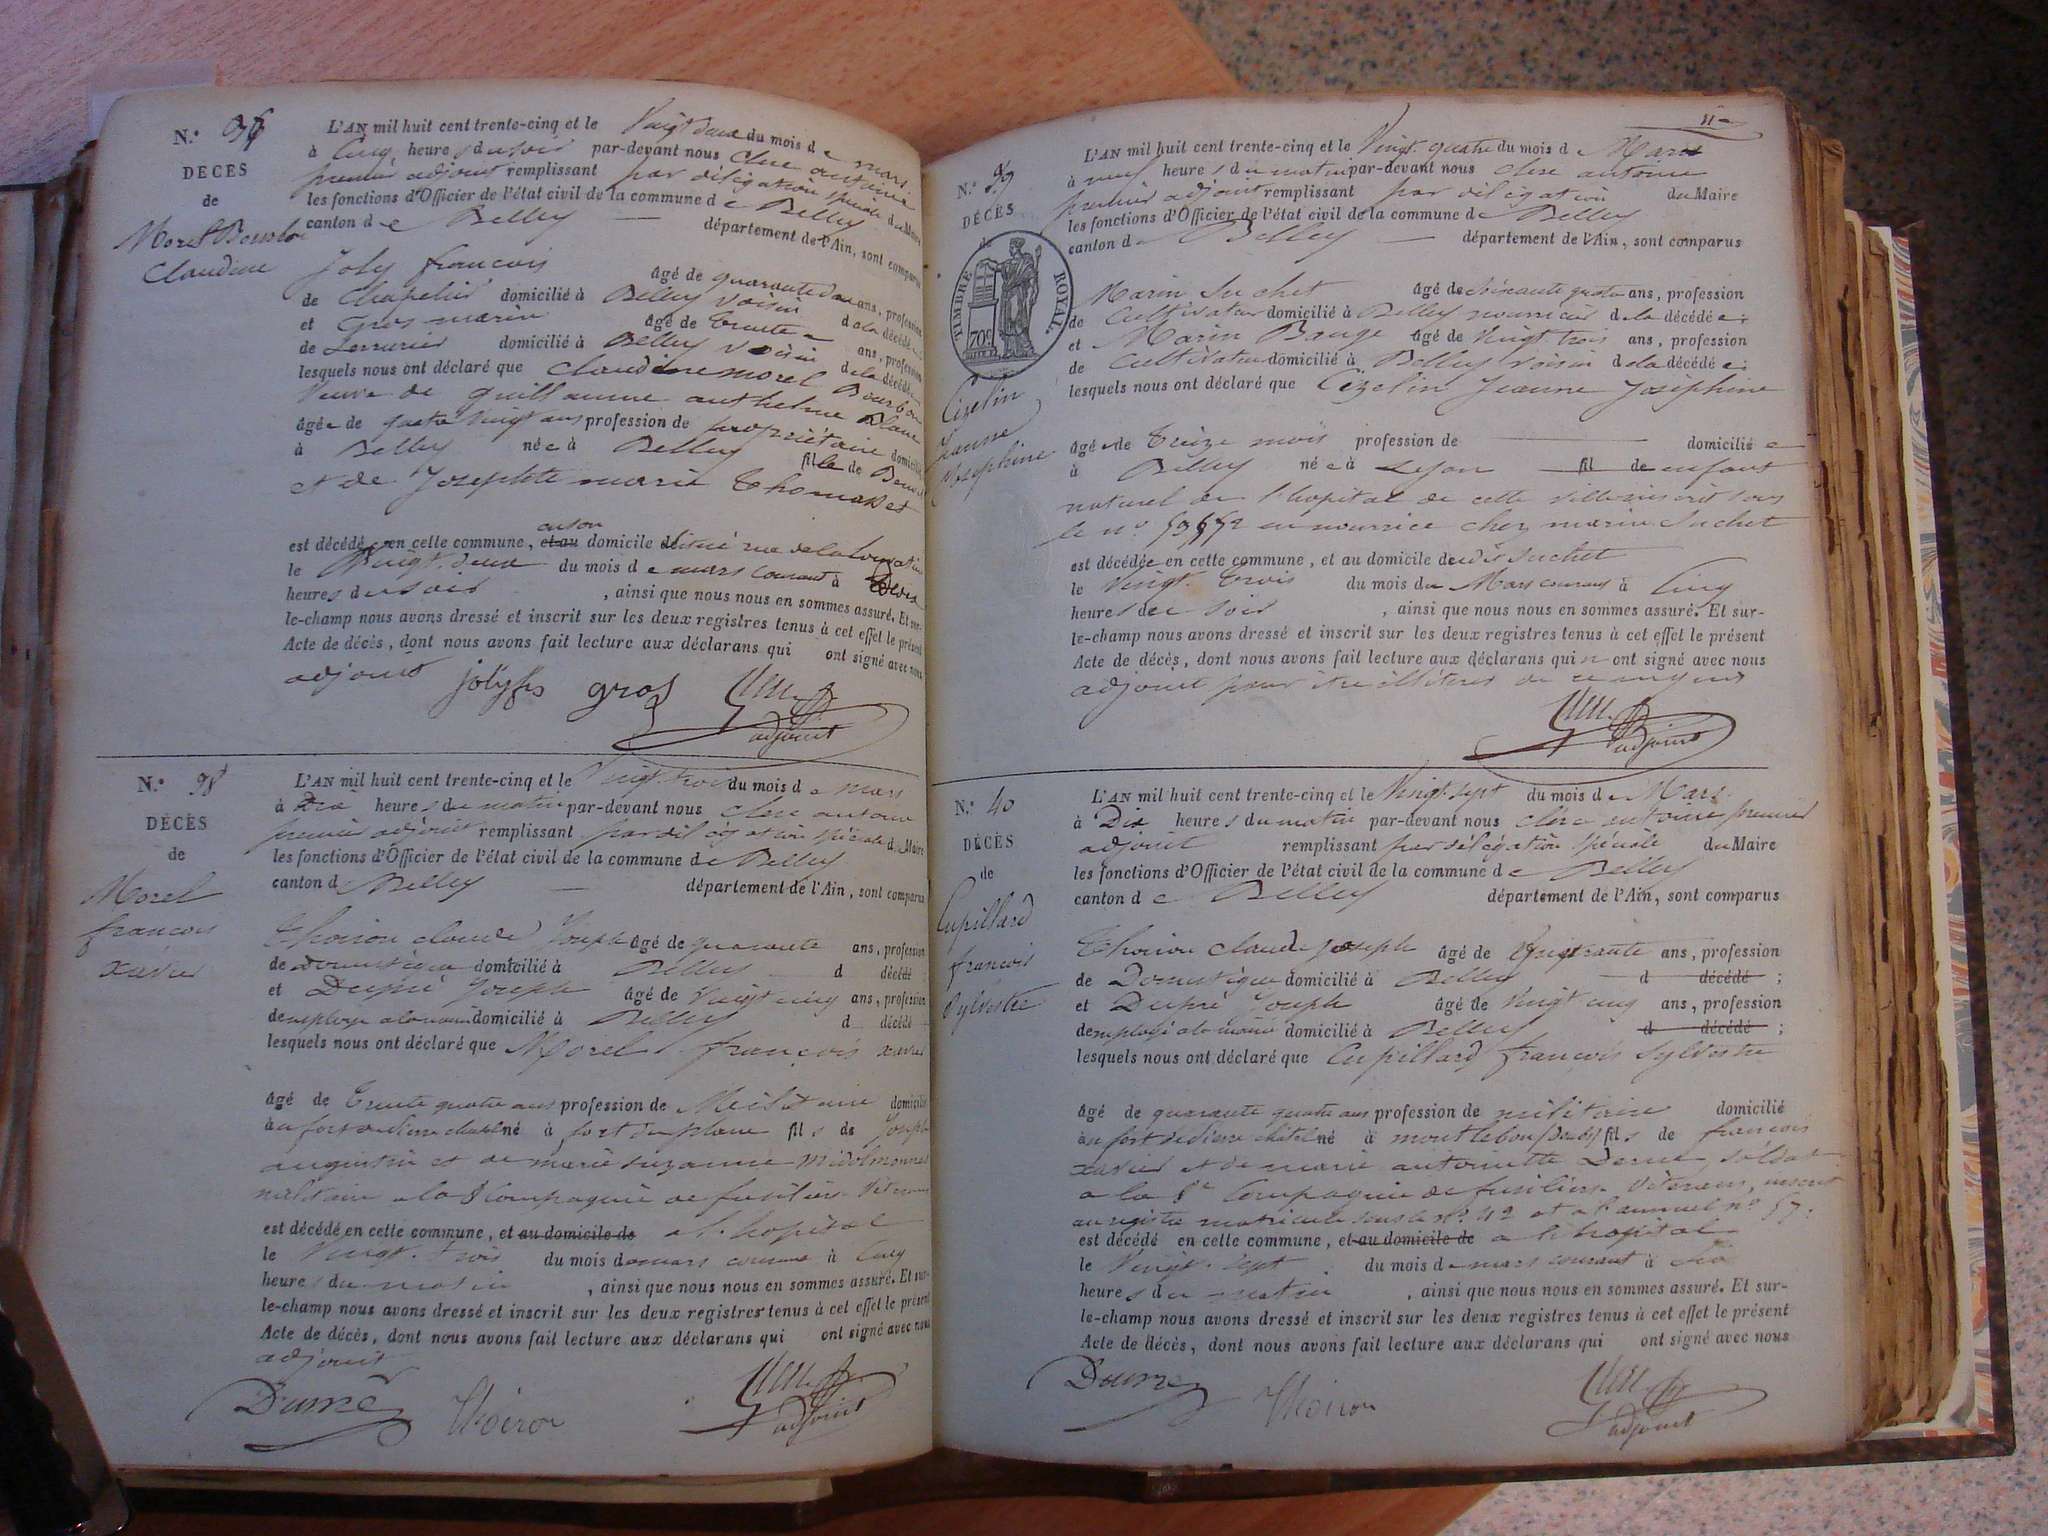 N.°
DÉCÈS
de
Morel Bourbon
Claudine
L'AN mil huit cent trente-cinq et le Vingt deux du mois de mars
à Cinq heures du soir par-devant nous Clerc antoine
premier adjoint remplissant par délégation spéciale du Maire
les fonctions d'Officier de l'état civil de la commune de Belley
canton de Belley département de l'Ain, sont comparus
Joly françois âgé de quarante deux ans, profession
de Chapelier domicilié à Belley voisin de la décédée
et Gros marin âgé de Trente ans, profession
de Serrurier domicilié à Belley voisin de la décédée
lesquels nous ont déclaré que Claudine morel Bourbon
Veuve de guillaume anthelme Blanc
âgée de quatre vingt ans profession de propriétaire domicilié
à Belley née à Belley fille de Benoit
et de Josephte marie Thomasset
est décédée en cette commune, en son et au domicile situé rue de la
le Vingt deux du mois de mars courant à
heures du soir, ainsi que nous nous en sommes assuré. Et sur-
le-champ nous avons dressé et inscrit sur les deux registres tenus à cet effet le présent
Acte de décès, dont nous avons fait lecture aux déclarans qui ont signé avec nous
adjoint
gros
adjoint
N.° 38
DÉCÈS
de
Morel
françois
xavier
L'AN mil huit cent trente-cinq et le Vingt trois du mois de mars
à Dix heures du matin par-devant nous Clerc antoine
premier adjoint remplissant par délégation spéciale du Maire
les fonctions d'Officier de l'état civil de la commune de Belley
canton de Belley département de l'Ain, sont comparus
Thoiron claude Joseph âgé de quarante ans, profession
de Domestique domicilié à Belley d décédé
et Dupré Joseph âgé de vingt cinq ans, profession
d'employé a la mairie domicilié à Belley d décédé
lesquels nous ont déclaré que Morel françois xavier
âgé de Trente quatre ans profession de Militaire domicilié
au fort de Pierre châtel né à fort du plane fils de Joseph
augustin et de marie suzanne
militaire a la 8 Compagnie de fusiliers Vétérans
est décédé en cette commune, et au domicile de a l'hopital
le Vingt trois du mois de mars courant à Cinq
heures du matin, ainsi que nous nous en sommes assuré. Et sur-
le-champ nous avons dressé et inscrit sur les deux registres tenus à cet effet le présent
Acte de décès, dont nous avons fait lecture aux déclarans qui ont signé avec nous
adjoint
Thoiron
adjoint
N.° 39
DÉCÈS
de
TIMBRE ROYAL.
70c
Cizelin
Jeanne
Josephine
L'AN mil huit cent trente-cinq et le Vingt quatre du mois de Mars
à neuf heures du matin par-devant nous Clerc antoine
premier adjoint remplissant par délégation du Maire
les fonctions d'Officier de l'état civil de la commune de Belley
canton de Belley département de l'Ain, sont comparus
Marin Suchet âgé de soixante quatre ans, profession
de Cultivateur domicilié à Belley nourricier de la décédée;
et Marin Bauge âgé de Vingt trois ans, profession
de Cultivateur domicilié à Belley voisin de la décédée;
lesquels nous ont déclaré que Cizelin Jeanne Joséphine
âgée de Treize mois profession de domiciliée
à Belley née à Lyon fil de enfant
naturel de l'hopital de cette ville inscrit sous
le n° en nourrice chez marin Suchet
est décédée en cette commune, et au domicile de dit Suchet
le Vingt trois du mois du Mars courant à Cinq
heures du soir, ainsi que nous nous en sommes assuré. Et sur-
le-champ nous avons dressé et inscrit sur les deux registres tenus à cet effet le présent
Acte de décès, dont nous avons fait lecture aux déclarans qui n ont signé avec nous
adjoint pour être illiterés de ce enquis
adjoint
N.° 40
DÉCÈS
de
Cupillard
françois
Sylvestre
L'AN mil huit cent trente-cinq et le Vingt sept du mois de Mars
à Dix heures du matin par-devant nous Clerc antoine premier
adjoint remplissant par délégation spéciale du Maire
les fonctions d'Officier de l'état civil de la commune de Belley
canton de Belley département de l'Ain, sont comparus
Thoiron claude Joseph âgé de ans, profession
de Domestique domicilié à Belley d décédé;
et Dupré Joseph âgé de Vingt cinq ans, profession
d'employé a la mairie domicilié à Belley d décédé;
lesquels nous ont déclaré que Cupillard françois Sylvestre
âgé de quarante quatre ans profession de militaire domicilié
au fort de Pierre châtel né à montlebon (Doubs) fils de francois
xavier et de marie antoinette soldat
a la 8e Compagnie de fusiliers Vétérans, inscrit
au registre matricule sous le n° 42 et a l'annuel n° 57.
est décédé en cette commune, et au domicile de a l'hopital
le Vingt sept du mois de mars courant à Six
heures du matin, ainsi que nous nous en sommes assuré. Et sur-
le-champ nous avons dressé et inscrit sur les deux registres tenus à cet effet le présent
Acte de décès, dont nous avons fait lecture aux déclarans qui ont signé avec nous
Thoiron
adjoint